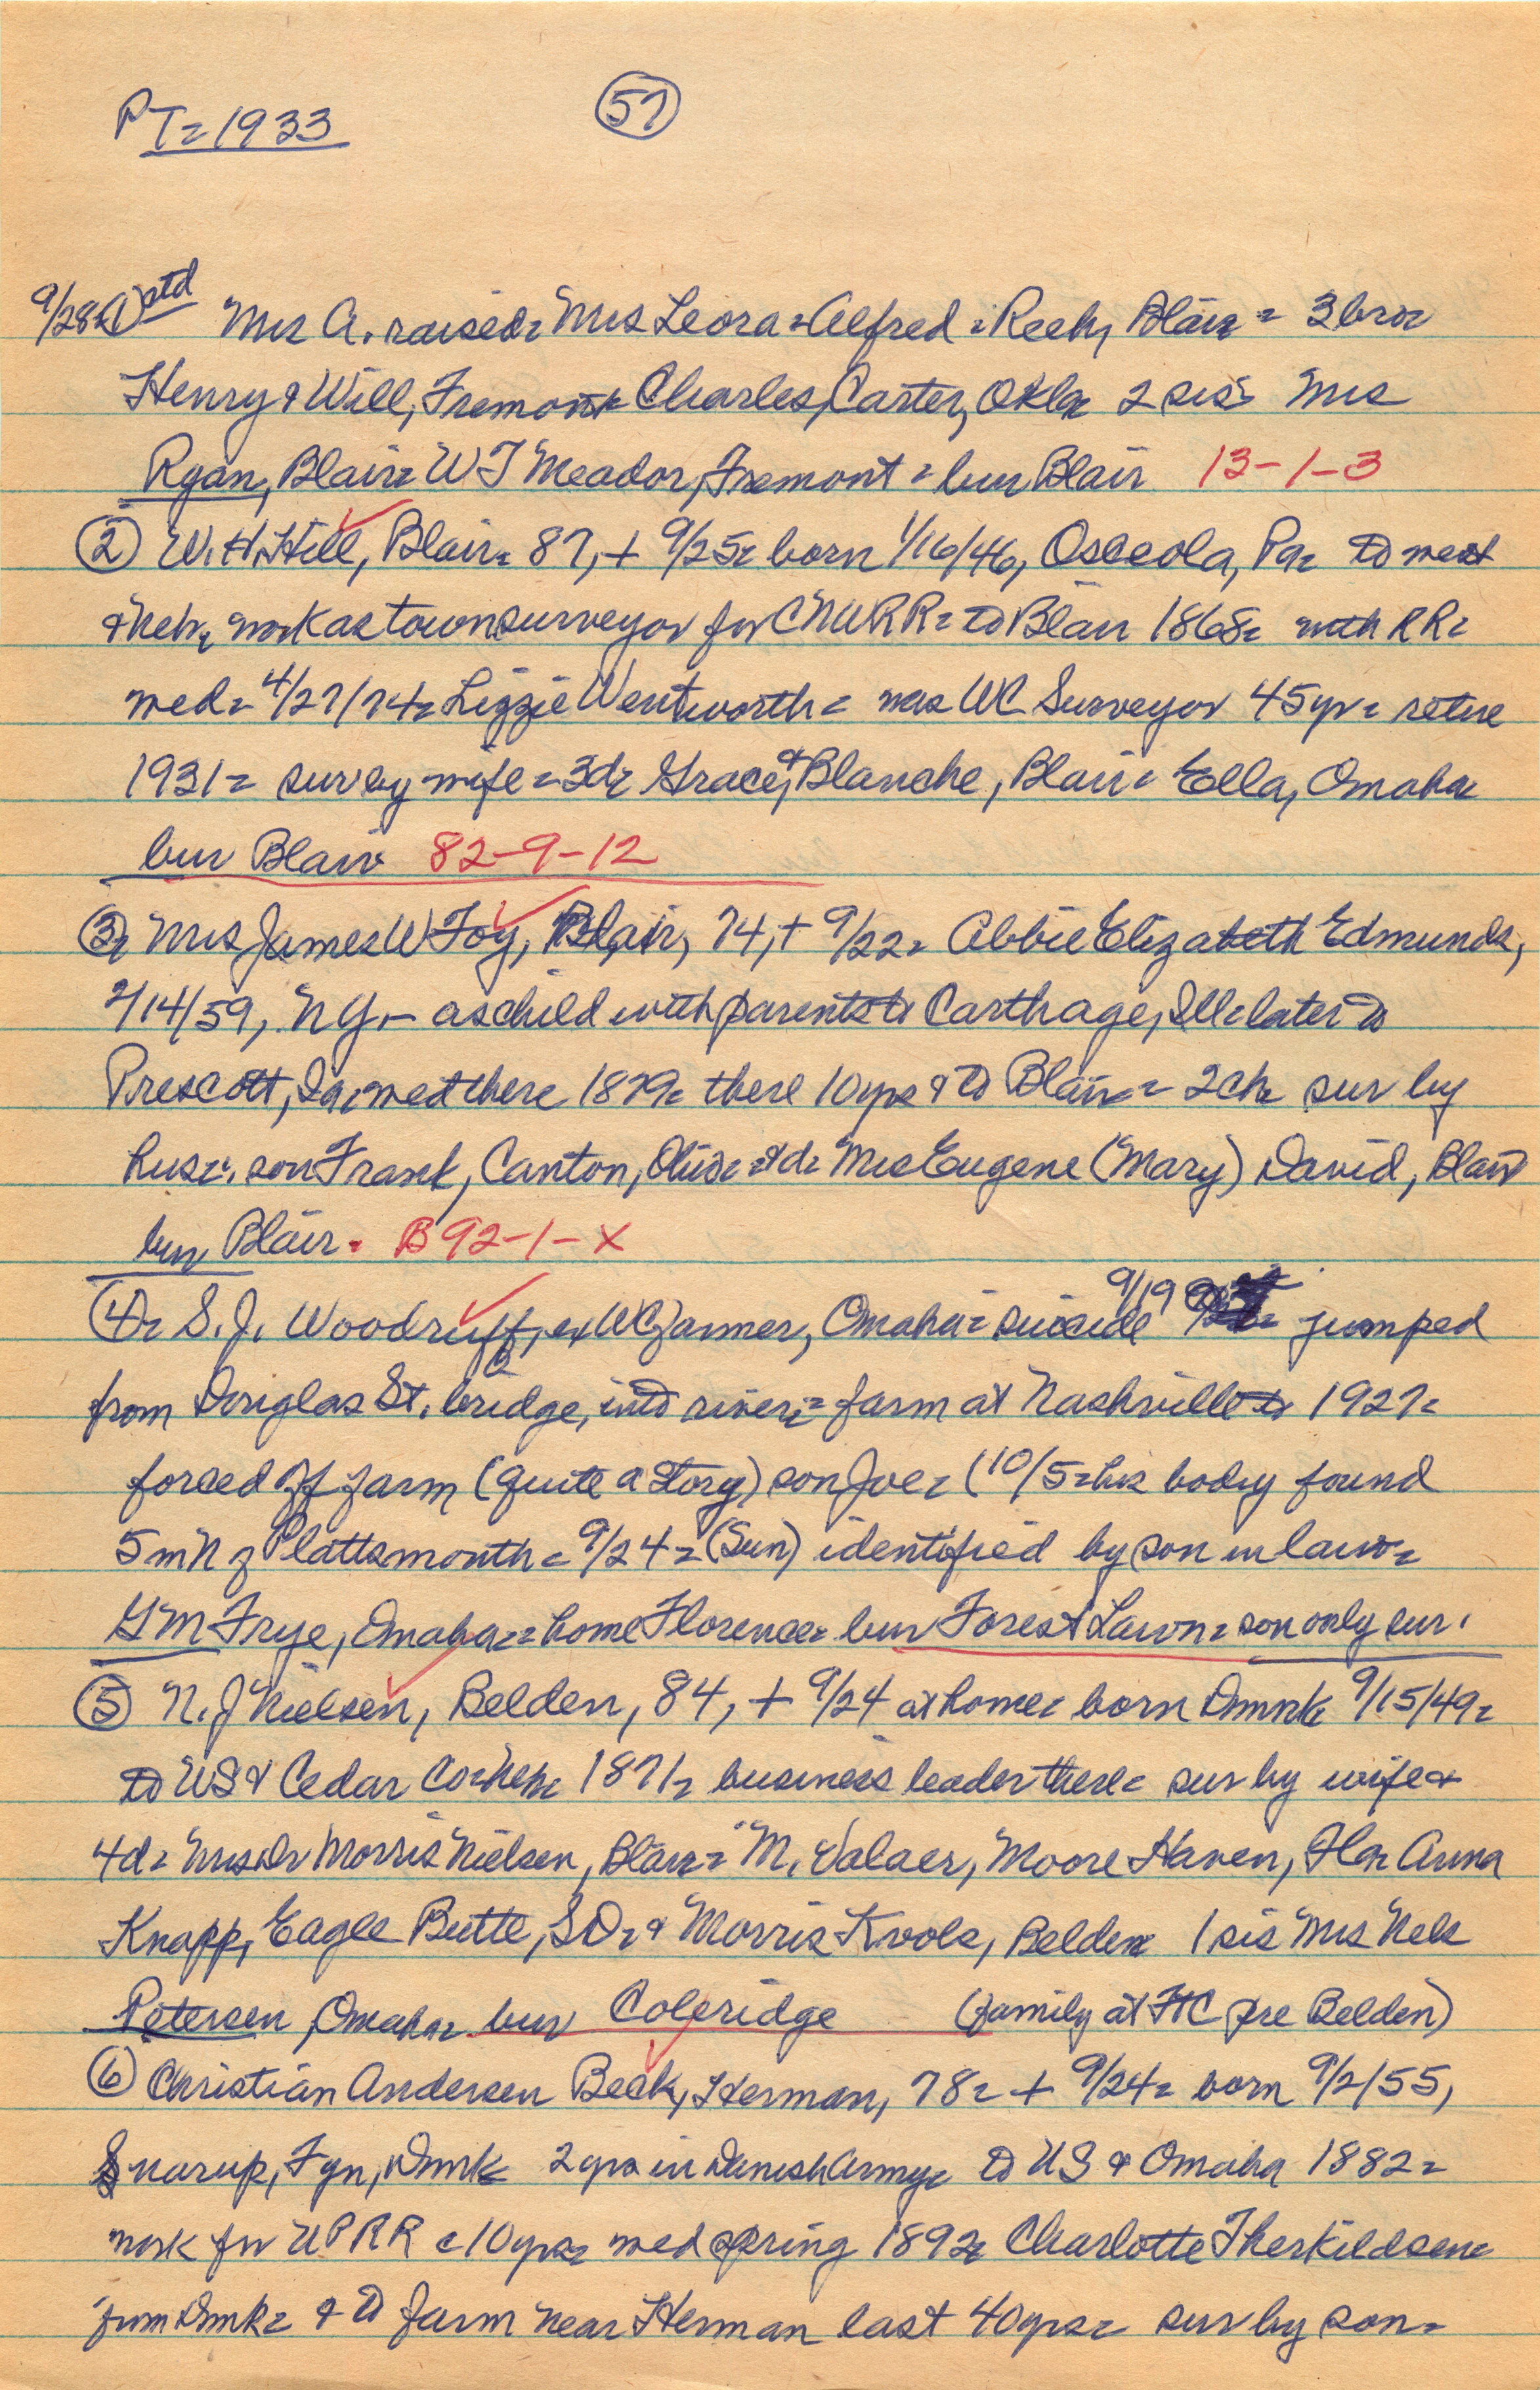 PT= 1933
57
9/28= ① ctd Mrs A. raised= Mrs Leora= Alfred= Reeh, Blair= 3 bro=
Henry & Will, Fremont Charles, Carter, Okla= 2 sis= Mrs
Ryan, Blair= W T Meador, Fremont= bur Blair 13-1-3
② W. H. Hill, Blair= 87, + 9/25= born 1/16/46, Osceola, Pa= to west
& Neb= work as town surveyor for CNWRR= to Blair 1868= with RR=
med= 4/27/74= Lizzie Wentworth= was WC Surveyor 45 yr= retire
1931= sur by wife= 3d= Grace, & Blanche, Blair= Ella, Omaha=
bur Blair 82-9-12
③= Mrs James W Foy, Blair, 74, + 9/22= Abbie Elizabeth Edmunds,
2/14/59, N Y,- as child with parents to Carthage, Ill= later to
Prescott, Ia, med there 1879= there 10 yrs & to Blair= 2 ch= sur by
hus=, son Frank, Canton, Ohio= & d= Mrs Eugene (Mary) David, Blair
bur Blair. B 92-1-X
④= S. J. Woodruff, ex WC farmer, Omaha= suicide 9/19 jumped
from Douglas St. bridge, into river= farm at Nashville to 1927=
forced off farm (quite a story) son Joe= (10/5= his body found
5 m N of Plattsmouth= 9/24= (Sun) identified by son in law=
G M Frye, Omaha= home Florence= bur Forest Lawn= son only sur.
⑤ N. J Nielsen, Belden, 84, + 9/24 at home= born Dnmk 9/15/49=
to US & Cedar Co= Neb= 1871= business leader there= sur by wife &
4d= Mrs Dr Morris Nielsen, Blair= M. Valaer, Moore Haven, Fla= Anna
Knapp, Eagle Butte, SD= & Morris Kvols, Belden= 1 sis Mrs Nels
Petersen, Omaha= bur Coleridge (family at FtC pre Belden)
⑥ Christian Andersen Beck, Herman, 78= + 9/24= born 9/2/55,
Snarup, Fyn, Dnmk 2 yrs in Danish Army= to US & Omaha 1882=
work for UPRR = 10 yrs= med spring 1892= Charlotte Therkildsen=
from Dnmk= & to farm near Herman last 40 yrs= sur by son=